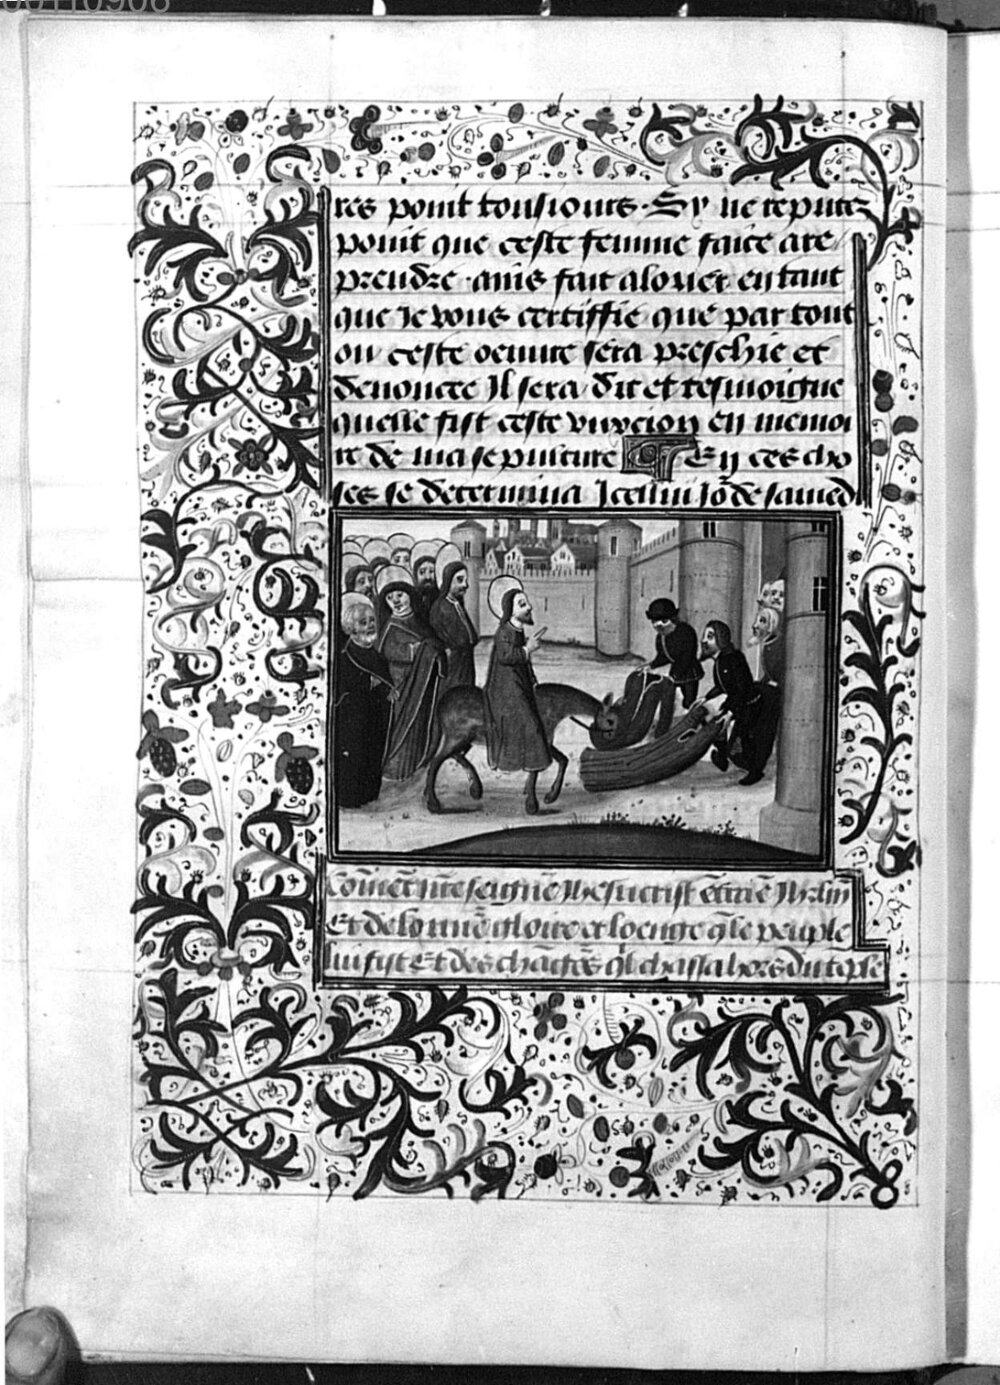 00110908
res point tousiours · Sy ne reputez
point que ceste femme faice a re
prendre · ains fait a louer en tant
que Je vous certiffie que par tout
ou ceste oeuure sera preschie et
denoncee Il sera dit et tesmoigne
quelle fist ceste vnxcion en memoi
re de ma sepulture En ces cho
ses se determina Icellui Jo᷑ de samedi
Com̃ẽt n̄re seignē Jhesucrist ẽtra ẽ Jhrlm
Et de lonnē gloire et loenge q̄ le peuple
lui fist Et des chãgeēs q̄l chassa hors du tẽple